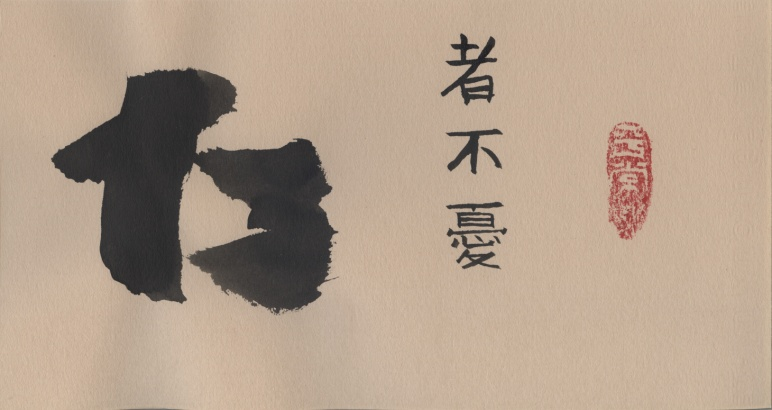 仁
者不憂